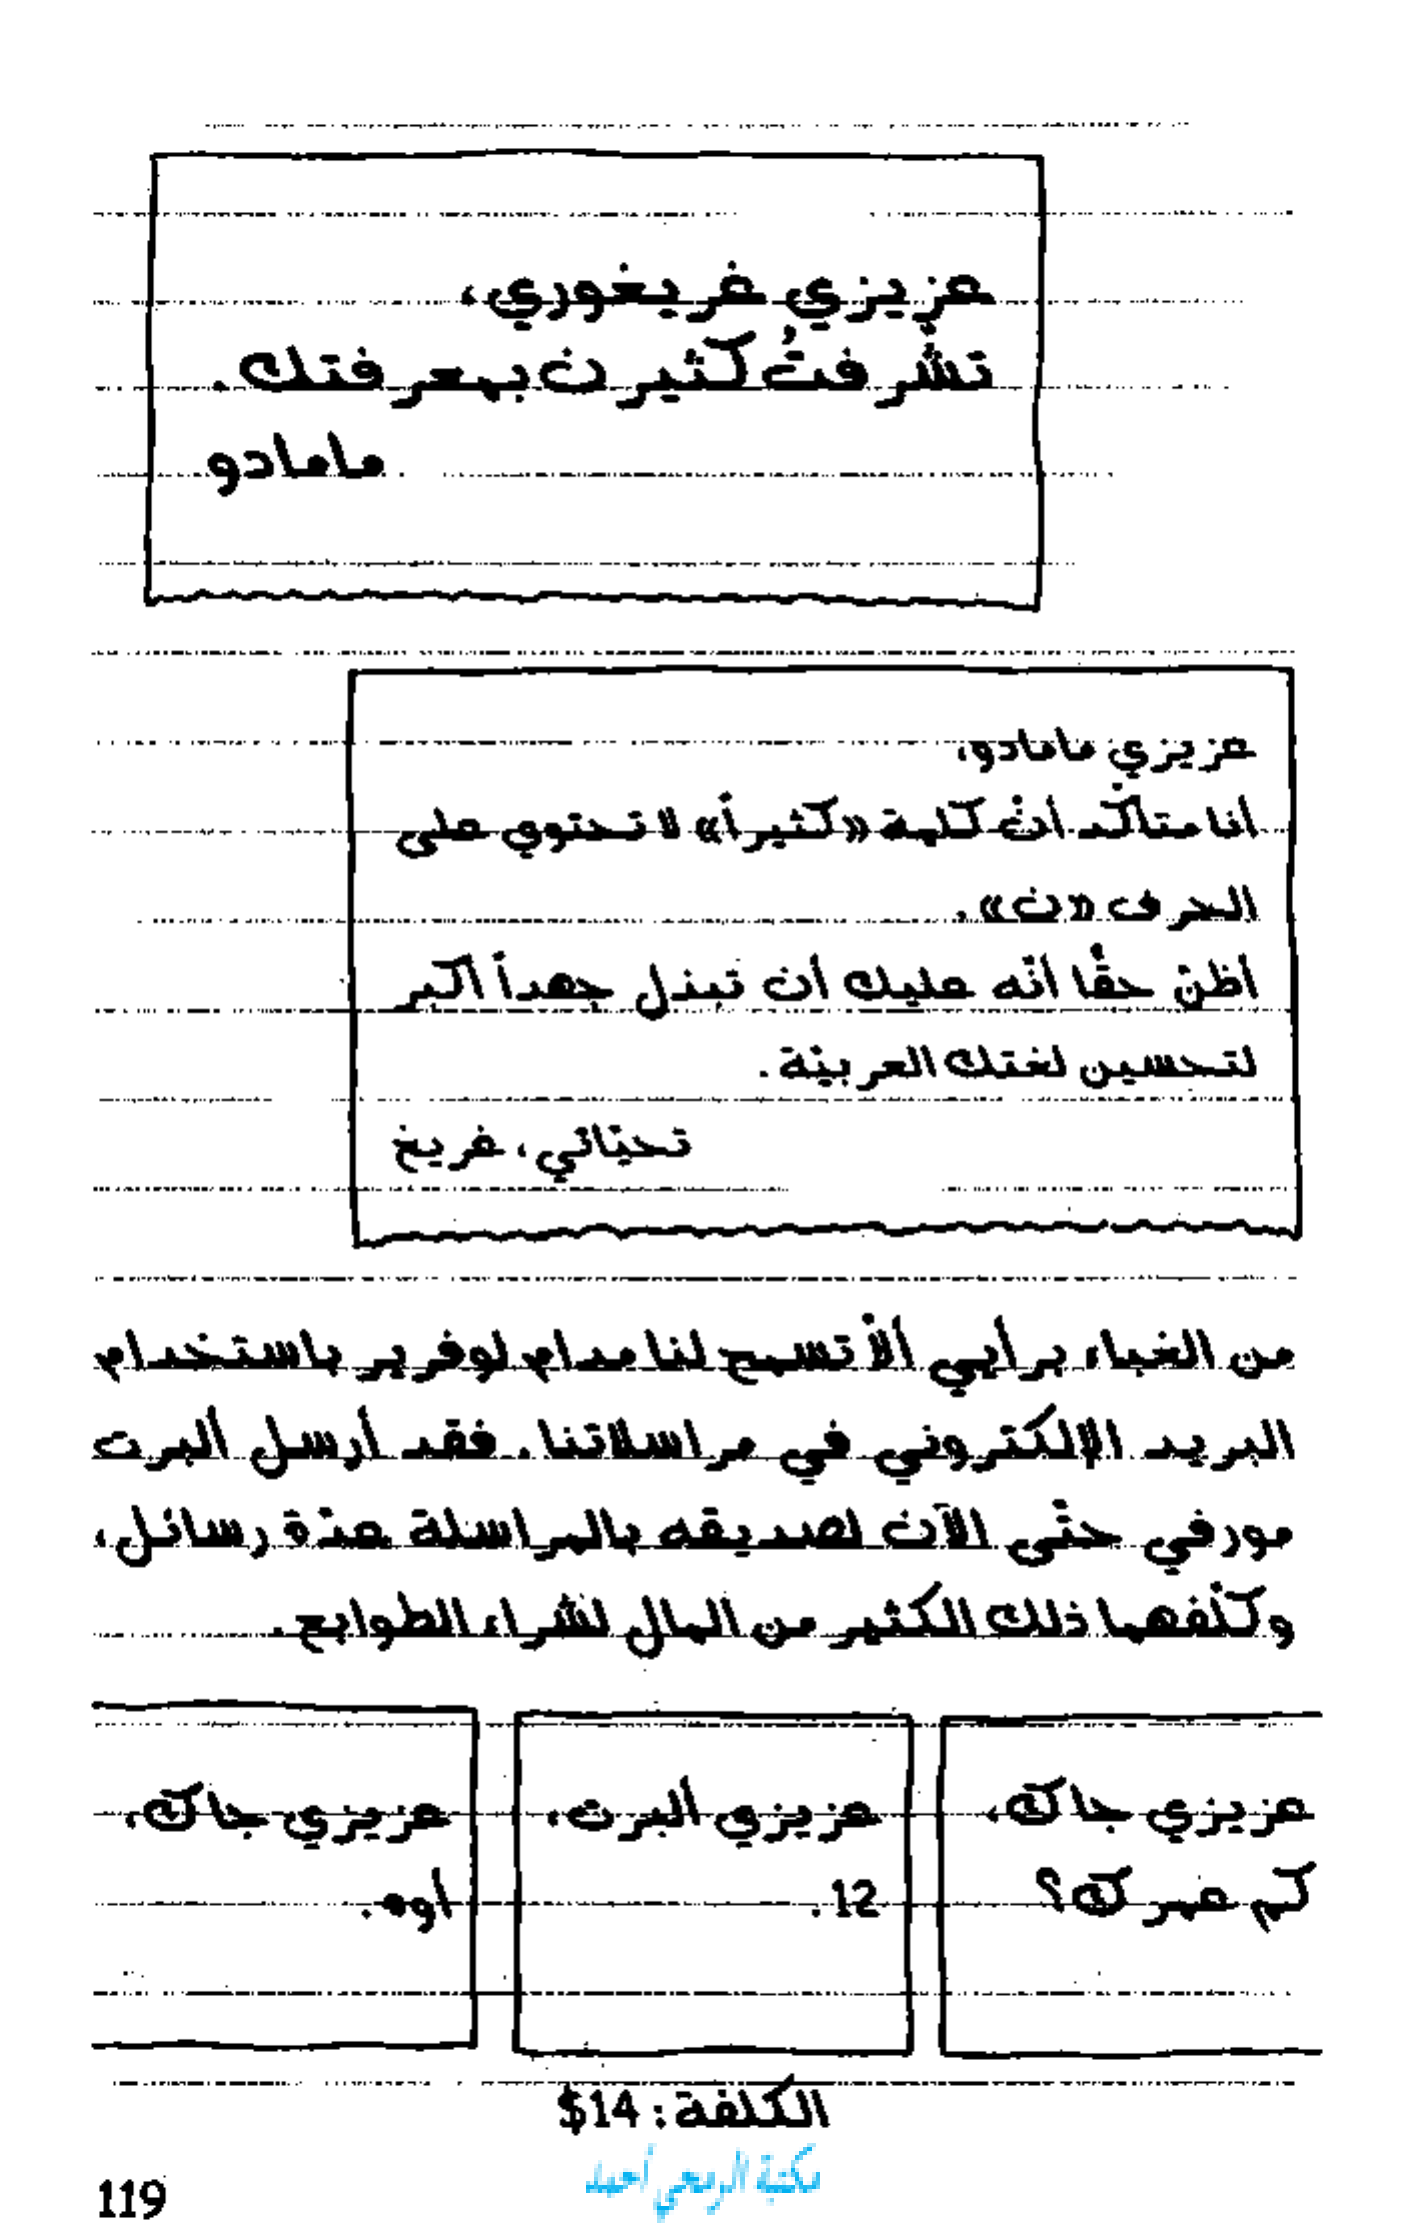 عزيزي غريغوري،
تشرّفتُ كثيرن بمعرفتك.
مامادو
عزيزي مامادو،
أنا متأكّد أنّ كلمة «كثيراً» لا تحتوي على
الحرف «ن».
أظنّ حقًّا أنّه عليك أن تبذل جهداً أكبر
لتحسين لغتك العربيّة.
تحيّاتي، غريغ
من الغباء برأيي ألّا تسمح لنا مدام لوفرير باستخدام
البريد الإلكتروني في مراسلاتنا. فقد أرسل ألبرت
مورفي حتّى الآن لصديقه بالمراسلة عدّة رسائل،
وكلّفهما ذلك الكثير من المال لشراء الطوابع.
عزيزي جاك،
كم عمرك؟
عزيزي ألبرت،
12.
عزيزي جاك،
اوه.
الكلفة: 14$
مكتبة الرمحي أحمد
119